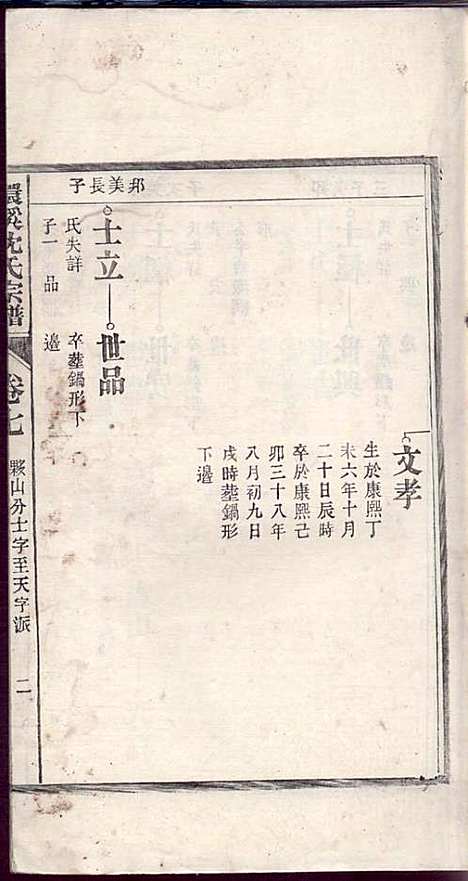 文孝
生於康熙丁
未六年十月
二十日辰時
卒於康熙己
卯三十八年
八月初九日
戌時塟鍋形
下邊
邦美長子
士立
世品
氏失詳
子一 品
卒塟鍋形下
邊
沈氏宗譜
卷七
夥山分士字至天字派
二